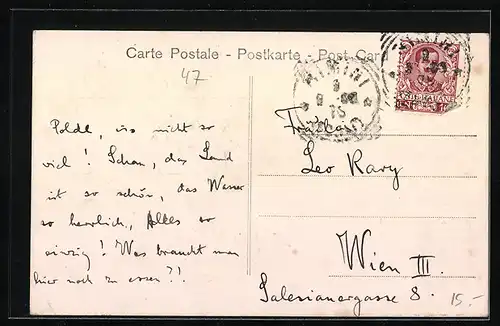 Carte Postale - Postkarte - Post Car
47
RIMINI
Poldl, iss nicht so
viel! Schau, das Land
ist so schön, das Wasser
so herrlich, Alles so
einzig! Was braucht man
hier noch zu essen?!
Leo Kary
Wien III.
Salesianergasse 8.
15.-